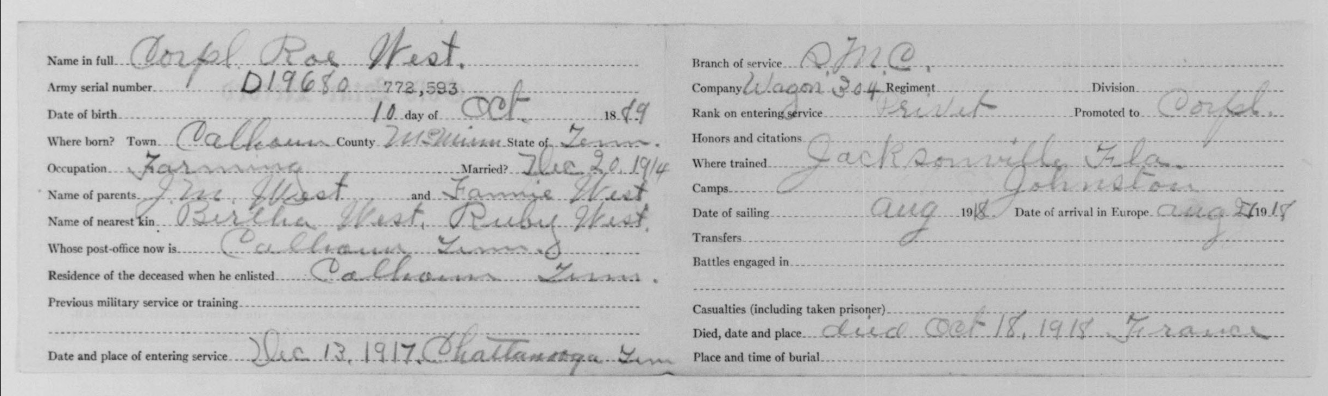 Name in full Corpl Roe West.
Army serial number D19680 772,593
Date of birth 10 day of Oct. 1889
Where born? Town Calhoun County McMinn State of Tenn.
Occupation Farming Married? Dec 20, 1914
Name of parents J.M. West and Fannie West
Name of nearest kin Bertha West, Ruby West.
Whose post-office now is Calhoun Tenn.
Residence of the deceased when he enlisted Calhoun Tenn.
Previous military service or training
Date and place of entering service Dec 13, 1917, Chattanooga Tenn
Branch of service Q.M.C.
Company Wagon 304 Regiment Division
Rank on entering service Privet Promoted to Corpl.
Honors and citations
Where trained Jacksonville Fla.
Camps Johnston
Date of sailing Aug 1918 Date of arrival in Europe Aug 1918
Transfers
Battles engaged in
Casualties (including taken prisoner)
Died, date and place died Oct 18, 1918 France
Place and time of burial